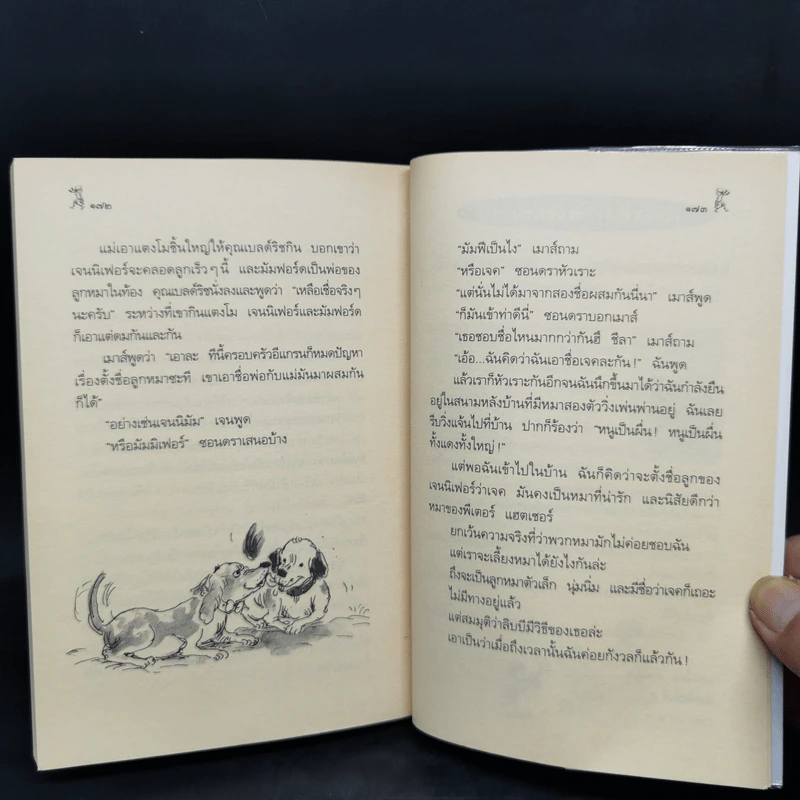 ๑๗๒
แม่เอาแตงโมชิ้นใหญ่ให้คุณเบลด์ริชกิน บอกเขาว่า
เจนนิเฟอร์จะคลอดลูกเร็วๆนี้ และมัมฟอร์ดเป็นพ่อของ
ลูกหมาในท้อง คุณเบลด์ริชนั่งลงและพูดว่า "เหลือเชื่อจริงๆ
นะครับ" ระหว่างที่เขากินแตงโม เจนนิเฟอร์และมัมฟอร์ด
ก็เอาแต่ดมกันและกัน
เมาส์พูดว่า "เอาละ ทีนี้ครอบครัวอีแกรนก็หมดปัญหา
เรื่องตั้งชื่อลูกหมาซะที เขาเอาชื่อพ่อกับแม่มันมาผสมกัน
ก็ได้"
"อย่างเช่นเจนนิมัม" เจนพูด
"หรือมัมมิเฟอร์" ซอนดราเสนอบ้าง
๑๗๓
"มัมฟีเป็นไง" เมาส์ถาม
"หรือเจค" ซอนดราหัวเราะ
"แต่นั่นไม่ได้มาจากสองชื่อผสมกันนี่นา" เมาส์พูด
"ก็มันเข้าท่าดีนี่" ซอนดราบอกเมาส์
"เธอชอบชื่อไหนมากกว่ากันฮึ ชีลา" เมาส์ถาม
"เอ้อ...ฉันคิดว่าฉันเอาชื่อเจคละกัน!" ฉันพูด
แล้วเราก็หัวเราะกันอีกจนฉันนึกขึ้นมาได้ว่าฉันกำลังยืน
อยู่ในสนามหลังบ้านที่มีหมาสองตัววิ่งเพ่นพ่านอยู่ ฉันเลย
รีบวิ่งแจ้นไปที่บ้าน ปากก็ร้องว่า "หนูเป็นผื่น! หนูเป็นผื่น
ทั้งแดงทั้งใหญ่!"
แต่พอฉันเข้าไปในบ้าน ฉันก็คิดว่าจะตั้งชื่อลูกของ
เจนนิเฟอร์ว่าเจค มันคงเป็นหมาที่น่ารัก และนิสัยดีกว่า
หมาของพีเตอร์ แฮตเชอร์
ยกเว้นความจริงที่ว่าพวกหมามักไม่ค่อยชอบฉัน
แต่เราจะเลี้ยงหมาได้ยังไงกันล่ะ
ถึงจะเป็นลูกหมาตัวเล็ก นุ่มนิ่ม และมีชื่อว่าเจคก็เถอะ
ไม่มีทางอยู่แล้ว
แต่สมมุติว่าลิบบีมีวิธีของเธอล่ะ
เอาเป็นว่าเมื่อถึงเวลานั้นฉันค่อยกังวลก็แล้วกัน!